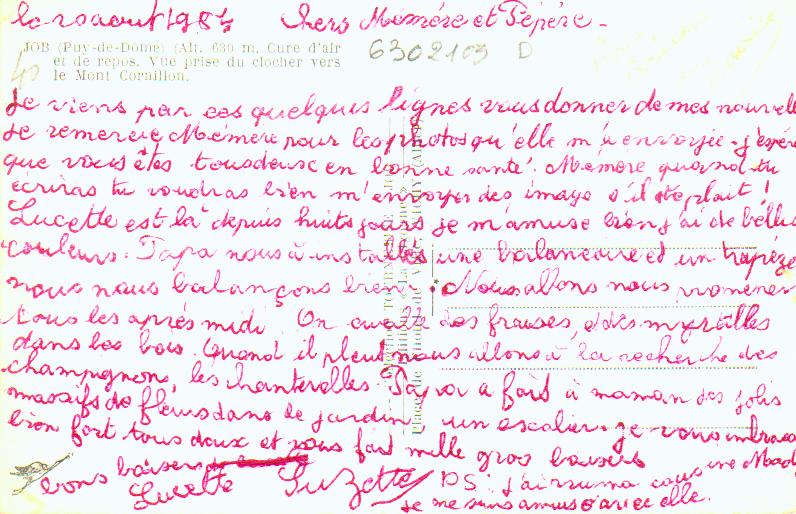 le 20 aout 1954 Chers Mémère et Pépère -
JOB (Puy-de-Dôme) (Alt. 630 m. Cure d'air
et de repos. Vue prise du clocher vers
le Mont Cornillon.
6302103 D
Je viens par ces quelques lignes vous donner de mes nouvelles
Je remercie Mémère pour les photos qu'elle m'a envoyie - j'espére
que vous êtes tous deux en bonne santé. Mémère quand tu
écriras tu voudras bien m'envoyer des images s'il te plait !
Lucette est là depuis huits jours je m'amuse bien j'ai de belles
couleurs. Papa nous à installés une balancoire et un trapéze
nous nous balançons bien. Nous allons nous promener
tous les aprés midi. On cueille des fraises, et des myrtilles
dans les bois. Quand il pleut nous allons à la recherche des
champignons, les chanterelles. Papa a fait à maman des jolis
massifs de fleurs dans le jardin, un escalier. je vous embrasse
bien fort tous deux et vous fait mille gros baisers
bons baisers
Lucette Suzette PS : j'ai une Mad
je me suis amusé avec elle.